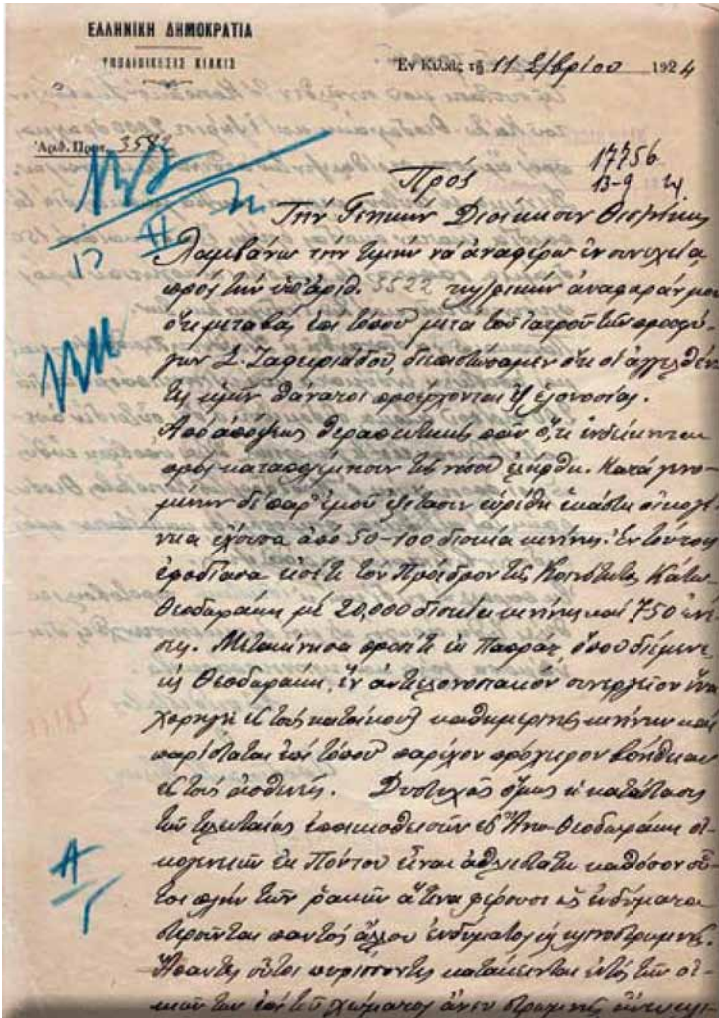 ΕΛΛΗΝΙΚΗ ΔΗΜΟΚΡΑΤΙΑ
ΥΠΟΔΙΟΙΚΗΣΙΣ ΚΙΛΚΙΣ
Ἐν Κιλκὶς τῇ 11 7/βρίου 1924
Ἀριθ. Πρωτ. 3582
17756
13-9
Πρός
Τὴν Γενικὴν Διοίκησιν Θεσ/νίκης
Λαμβάνω τὴν τιμὴν νὰ ἀναφέρω ἐν συνεχείᾳ
πρὸς τὴν ὑπ' ἀριθ. 3522 τηλ/φικὴν ἀναφοράν μου
ὅτι μεταβὰς ἐπὶ τόπου μετὰ τοῦ ἰατροῦ τῶν προσφύ-
γων Σ. Ζαφειριάδου, διεπιστώσαμεν ὅτι οἱ ἀγγελθέν-
τες ἡμῖν θάνατοι προέρχονται ἐξ ἑλονοσίας.
Ἀπὸ ἀπόψεως θεραπευτικῆς πᾶν ὅ,τι ἐνδείκνυται
πρὸς καταπολέμησιν τῆς νόσου ἐλήφθη. Κατὰ γενο-
μένην δὲ παρ' ἐμοῦ ἐξέτασιν εὑρέθη ἑκάστη οἰκογέ-
νεια ἔχουσα ἀπὸ 50-100 δισκία κινίνης. Ἐν τούτοις
ἐφοδίασα εἰσέτι τὸν Πρόεδρον τῆς Κοινότητος Κάτω
Θεοδωράκη μὲ 20,000 δισκία κινίνης καὶ 750 ἐνέ-
σεις. Μετεκίνησα προσέτι ἐκ ὅπου διέμενε
εἰς Θεοδωράκη, ἓν ἀνθελονοσιακὸν συνεργεῖον ἵνα
χορηγῇ εἰς τοὺς κατοίκους καθημερινῶς κινίνην καὶ
παρίσταται ἐπὶ τόπου παρέχον πρόχειρον βοήθειαν
εἰς τοὺς ἀσθενεῖς. Δυστυχῶς ὅμως ἡ κατάστασις
τῶν τελευταίως ἐποικισθεισῶν εἰς Ἄνω-Θεοδωράκη οἰ-
κογενειῶν ἐκ Πόντου εἶναι ἀθλιεστάτη καθόσον οὗ-
τοι πλὴν τῶν ῥακῶν ἅτινα φέρουσι ὡς ἐνδύματα
στεροῦνται παντὸς ἄλλου ἐνδύματος ἢ κλινοστρωμνῆς.
Ἅπαντες οὗτοι πυρέσσοντες κατάκεινται ἐντὸς τῶν οἰ-
κιῶν των ἐπὶ τοῦ χώματος ἄνευ στρωμνῆς